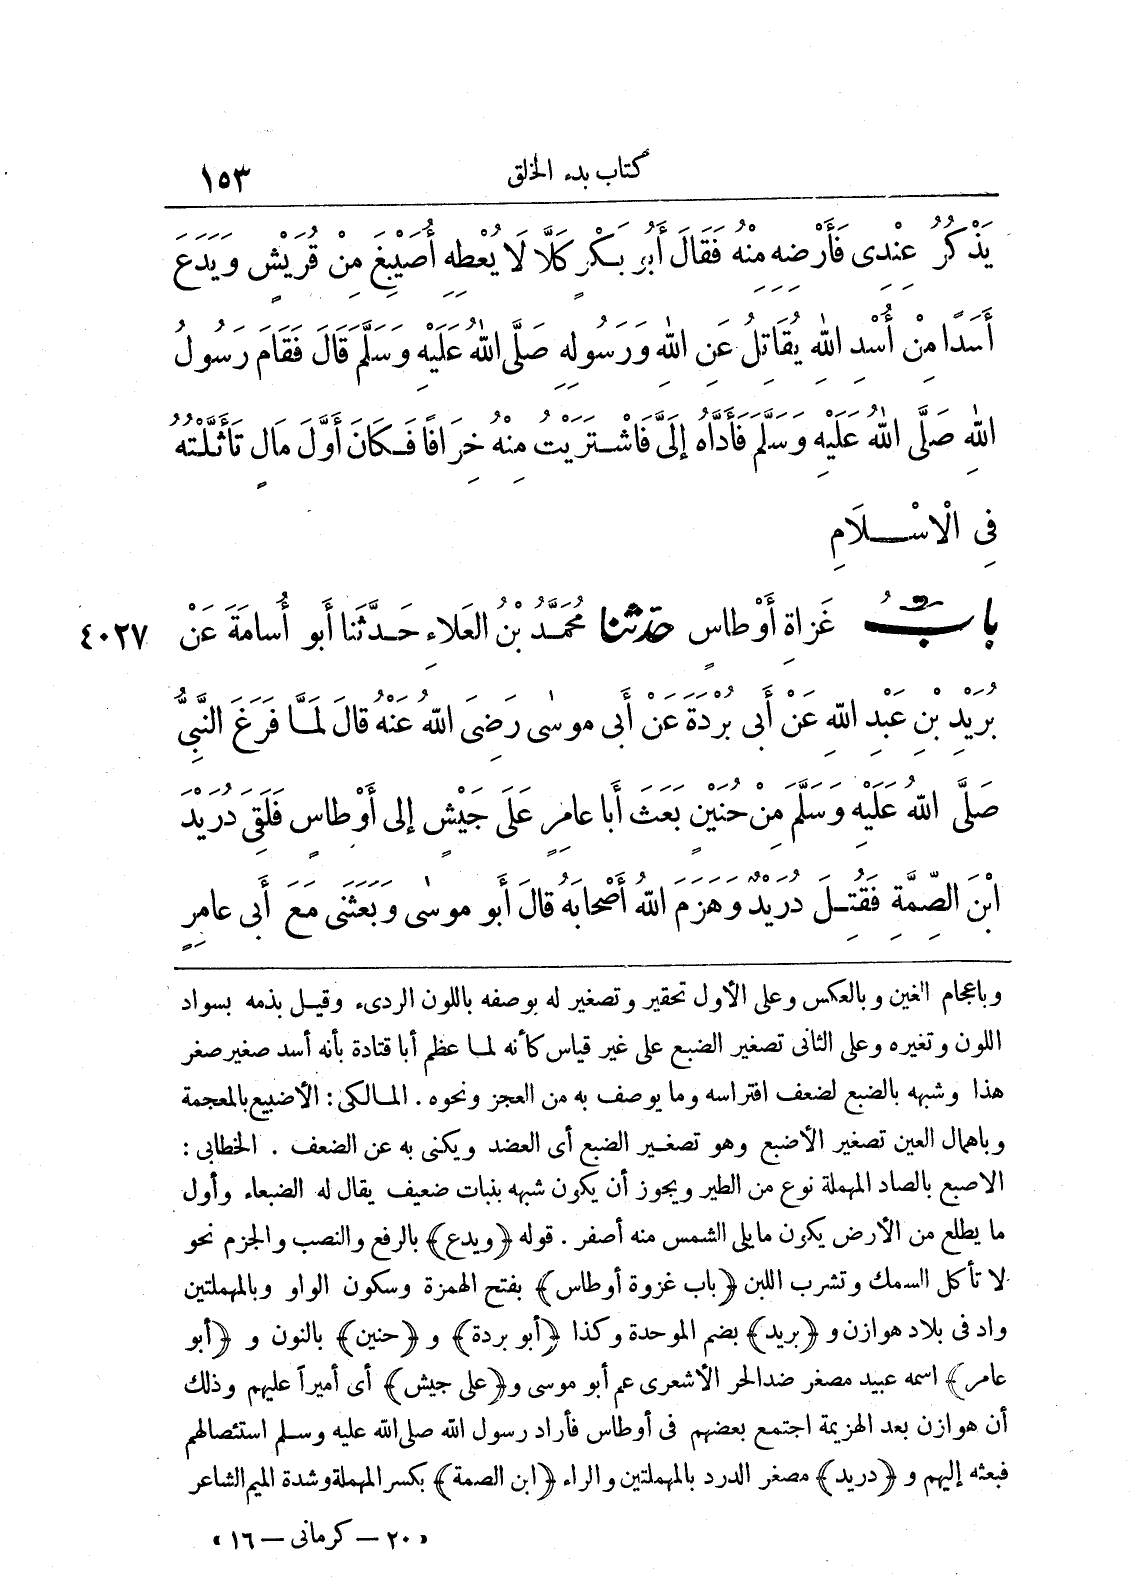 كتاب بدء الخلق ١٥٣
يَذْكُرُ عِنْدِى فَأَرْضِهِ مِنْهُ فَقَالَ أَبُو بَكْرٍ كَلَّا لَا يُعْطِهِ أُصَيْبِغَ مِنْ قُرَيْشٍ وَيَدَعَ
أَسَدًا مِنْ أُسْدِ اللهِ يُقَاتِلُ عَنِ اللهِ وَرَسُولِهِ صَلَّى اللهُ عَلَيْهِ وَسَلَّمَ قَالَ فَقَامَ رَسُولُ
اللهِ صَلَّى اللهُ عَلَيْهِ وَسَلَّمَ فَأَدَّاهُ إِلَىَّ فَاشْتَرَيْتُ مِنْهُ خِرَافًا فَكَانَ أَوَّلَ مَالٍ تَأَثَّلْتُهُ
فِى الْاسْلَامِ
بابُ غَزاةِ أَوْطاسٍ حدثنا مُحَمَّدُ بْنُ العَلاءِ حَدَّثَنا أَبو أُسامَةَ عَنْ ٤٠٢٧
بُرَيْدِ بْنِ عَبْدِ اللهِ عَنْ أَبى بُرْدَةَ عَنْ أَبى موسٰى رَضِىَ اللهُ عَنْهُ قالَ لَمَّا فَرَغَ النَّبِىُّ
صَلَّى اللهُ عَلَيْهِ وَسَلَّمَ مِنْ حُنَيْنٍ بَعَثَ أَبا عامِرٍ عَلَى جَيْشٍ إلى أَوْطاسٍ فَلَقِىَ دُرَيْدَ
ابْنَ الصِّمَّةِ فَقُتِلَ دُرَيْدٌ وَهَزَمَ اللهُ أَصْحابَهُ قالَ أَبو موسٰى وَبَعَثَنى مَعَ أَبى عامِرٍ
وباعجام الغين وبالعكس وعلى الأول تحقير وتصغير له بوصفه باللون الردىء وقيل بذمه بسواد
اللون وتغيره وعلى الثانى تصغير الضبع على غير قياس كأنه لما عظم أبا قتادة بأنه أسد صغير صغر
هذا وشبهه بالضبع لضعف افتراسه وما يوصف به من العجز ونحوه . المالكى : الأضبيع بالمعجمة
وباهمال العين تصغير الأضبع وهو تصغير الضبع أى العضد ويكنى به عن الضعف . الخطابى :
الاصبع بالصاد المهملة نوع من الطير ويجوز أن يكون شبهه بنبات ضعيف يقال له الضبعاء وأول
ما يطلع من الأرض يكون مايلى الشمس منه أصفر . قوله ﴿ويدع﴾ بالرفع والنصب والجزم نحو
لا تأكل السمك وتشرب اللبن ﴿باب غزوة أوطاس﴾ بفتح الهمزة وسكون الواو وبالمهملتين
واد فى بلاد هوازن و ﴿بريد﴾ بضم الموحدة وكذا ﴿أبو بردة﴾ و ﴿حنين﴾ بالنون و ﴿أبو
عامر﴾ اسمه عبيد مصغر ضدالحر الأشعرى عم أبو موسى و﴿على جيش﴾ أى أميراً عليهم وذلك
أن هوازن بعد الهزيمة اجتمع بعضهم فى أوطاس فأراد رسول الله صلى الله عليه وسلم استئصالهم
فبعثه إليهم و ﴿دريد﴾ مصغر الدرد بالمهملتين والراء ﴿ابن الصمة﴾ بكسر المهملة وشدة الميم الشاعر
« ٢٠ – كرمانى – ١٦ »